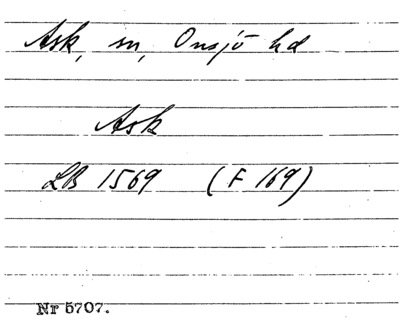 Ask, sn, Onsjö hd
Ask
LB 1569 (F 169)
Nr 5707.